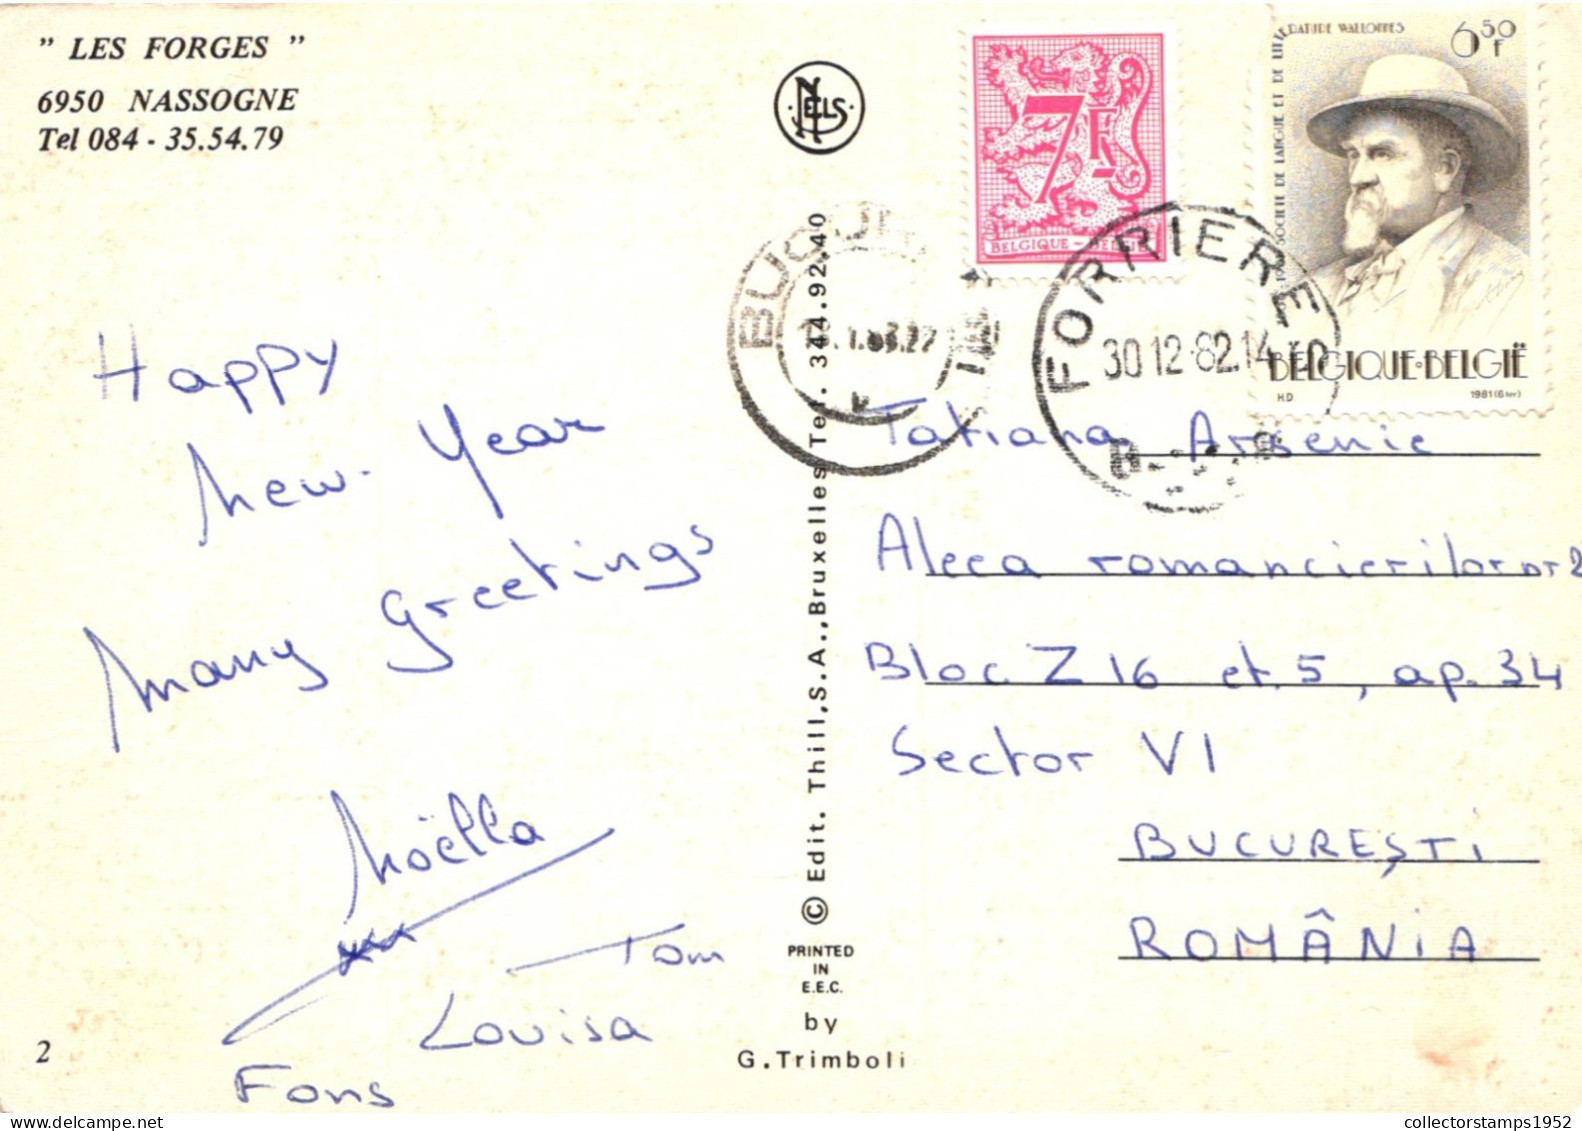 " LES FORGES "
6950 NASSOGNE
Tel 084 - 35.54.79
NELS
7F
BELGIQUE - BELGIË
SOCIETE DE LANGUE ET DE LITTERATURE WALLONNES
6 50 F
BELGIQUE·BELGIË
H.D
1981 (6 ter)
FORRIERE
30 12·82.14
Happy
New-Year
many greetings
Noëlla
Tom
Louisa
Fons
2
© Edit. Thill,S.A.,Bruxelles Tel. 344.92.40
PRINTED
IN
E.E.C.
by
G.Trimboli
Tatiana Arsenie
Aleea romancierilor nr 2
Bloc Z 16 et. 5, ap. 34
Sector VI
BUCUREŞTI
ROMÂNIA
collectorstamps1952